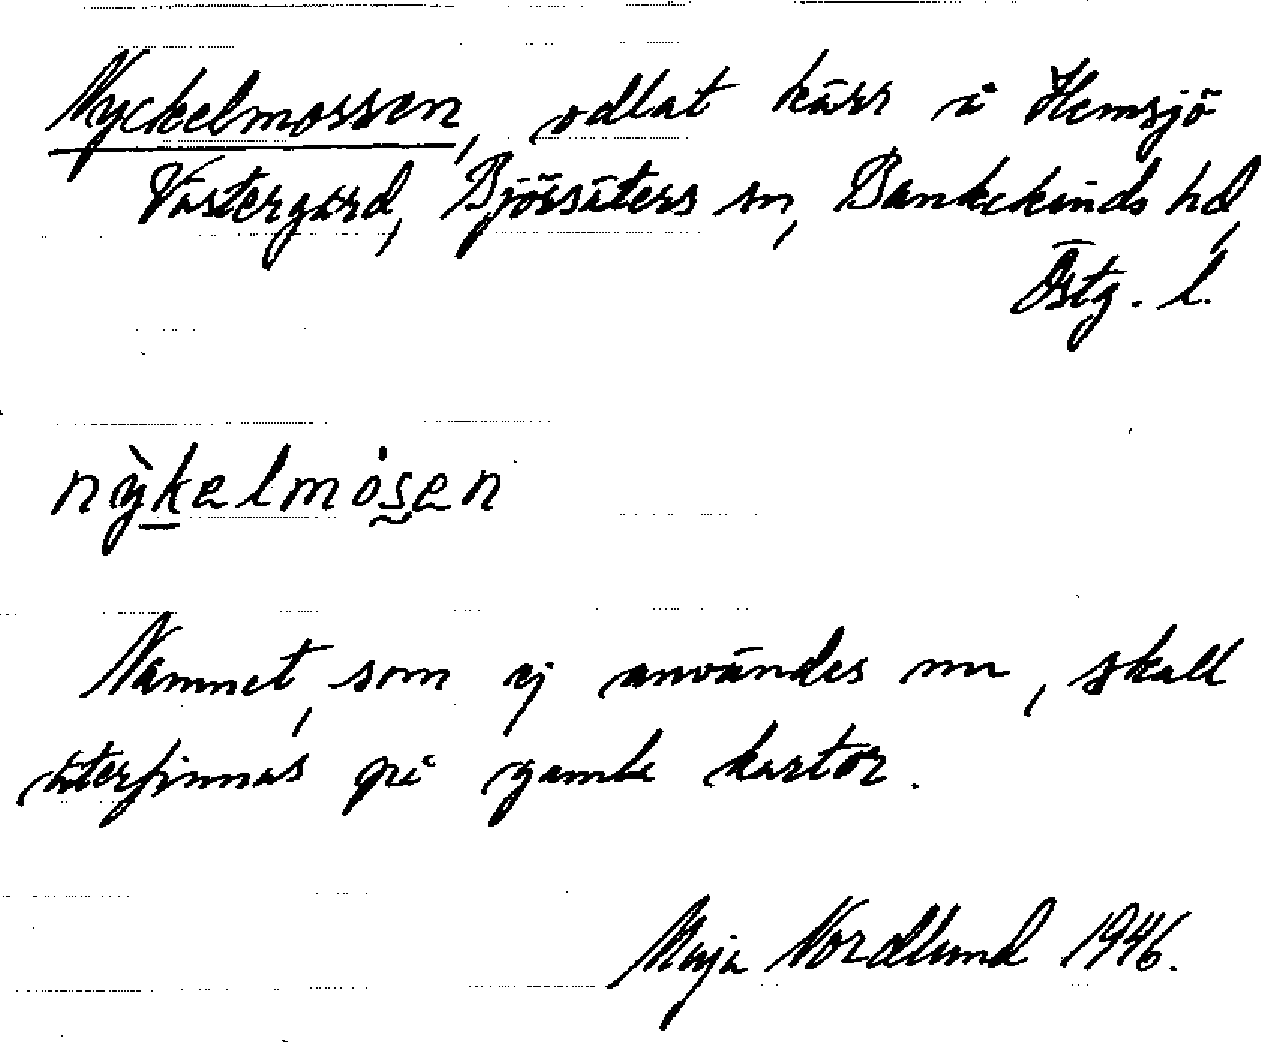 Nyckelmossen, odlat kärr i Hemsjö
Västergård, Björsäters sn, Bankekinds hd,
Östg. l.
nỳkelmȯsen
Namnet, som ej användes nu, skall
återfinnas på gamla kartor.
Maja Nordlund 1946.